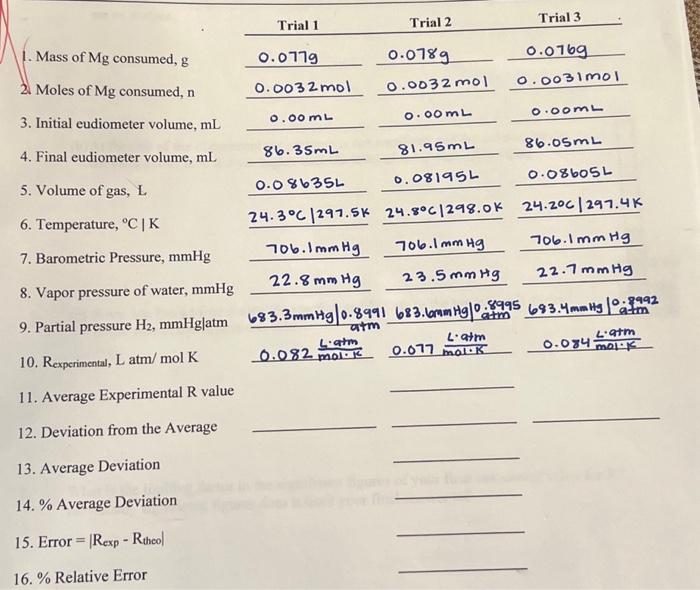 Trial 1 Trial 2 Trial 3
1. Mass of Mg consumed, g 0.077g 0.078g 0.076g
2. Moles of Mg consumed, n 0.0032mol 0.0032mol 0.0031mol
3. Initial eudiometer volume, mL 0.00mL 0.00mL 0.00mL
4. Final eudiometer volume, mL 86.35mL 81.95mL 86.05mL
5. Volume of gas, L 0.08635L 0.08195L 0.08605L
6. Temperature, °C | K 24.3°C|297.5K 24.8°C|298.0K 24.2°C|297.4K
7. Barometric Pressure, mmHg 706.1mmHg 706.1mmHg 706.1mmHg
8. Vapor pressure of water, mmHg 22.8mmHg 23.5mmHg 22.7mmHg
9. Partial pressure H₂, mmHg|atm 683.3mmHg|0.8991 atm 683.6mmHg|0.8995 atm 683.4mmHg|0.8992 atm
10. Rexperimental, L atm/ mol K 0.082 L·atm/mol·K 0.077 L·atm/mol·K 0.084 L·atm/mol·K
11. Average Experimental R value
12. Deviation from the Average
13. Average Deviation
14. % Average Deviation
15. Error = |Rexp - Rtheo|
16. % Relative Error